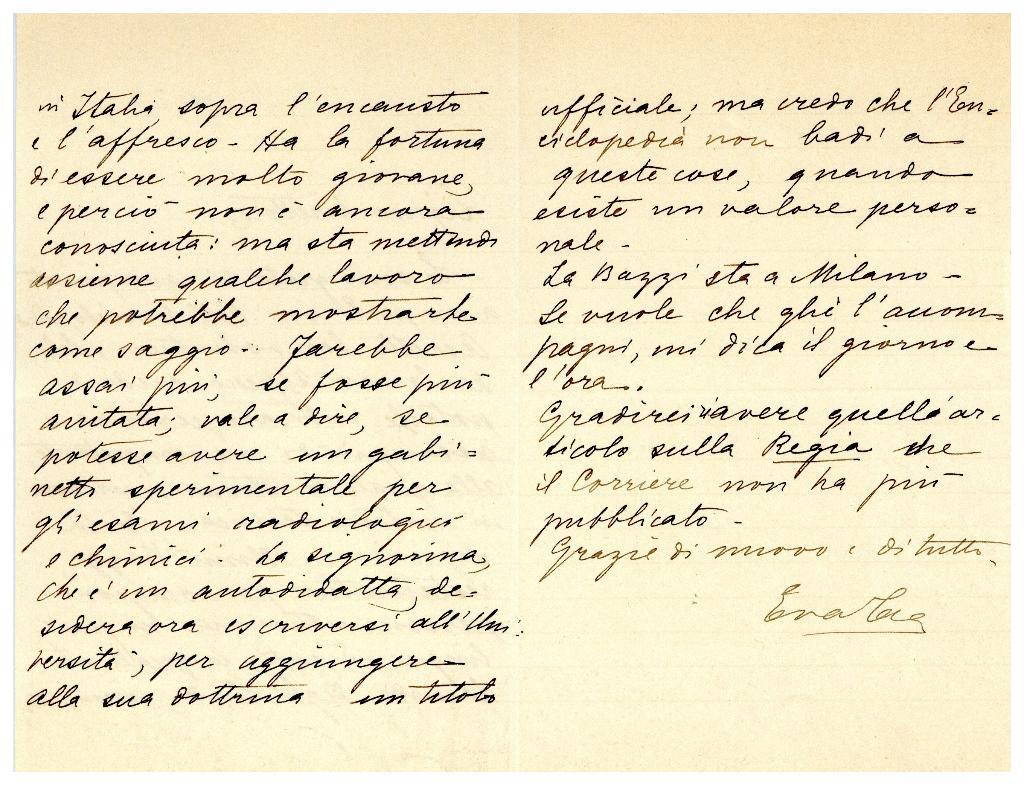 in Italia, sopra l'encausto
e l'affresco - Ha la fortuna
di essere molto giovane,
e perciò non è ancora
conosciuta: ma sta mettendo
assieme qualche lavoro
che potrebbe mostrarle
come saggio - Farebbe
assai più, se fosse più
aiutata; vale a dire, se
potesse avere un gabi=
netto sperimentale per
gli esami radiologici
e chimici - La signorina,
che è un autodidatta, de=
sidera ora iscriversi all'Uni=
versità, per aggiungere
alla sua dottrina un titolo
ufficiale; ma credo che l'En=
ciclopedia non badi a
queste cose, quando
esiste un valore perso=
nale -
La Bazzi sta a Milano -
Se vuole che gliè l'accom=
pagni, mi dica il giorno e
l'ora.
Gradirei riavere quello ar=
ticolo sulla Regia che
il Corriere non ha più
pubblicato -
Grazie di nuovo e di tutto.
Eva